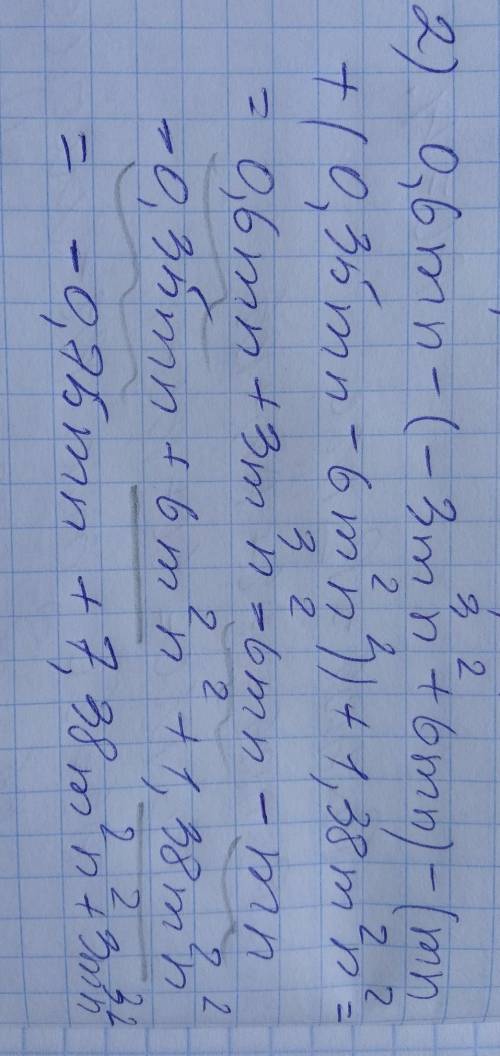 2) 0,6mn - (-3m³n² + 6mn) - (mn
+ (0,35mn - 6m²n²)) + 1,38m²n² =
= 0,6mn + 3m³n² - 6mn - mn
- 0,35mn + 6m²n² + 1,38m²n²
= - 0,75mn + 7,38m²n² + 3m³n²